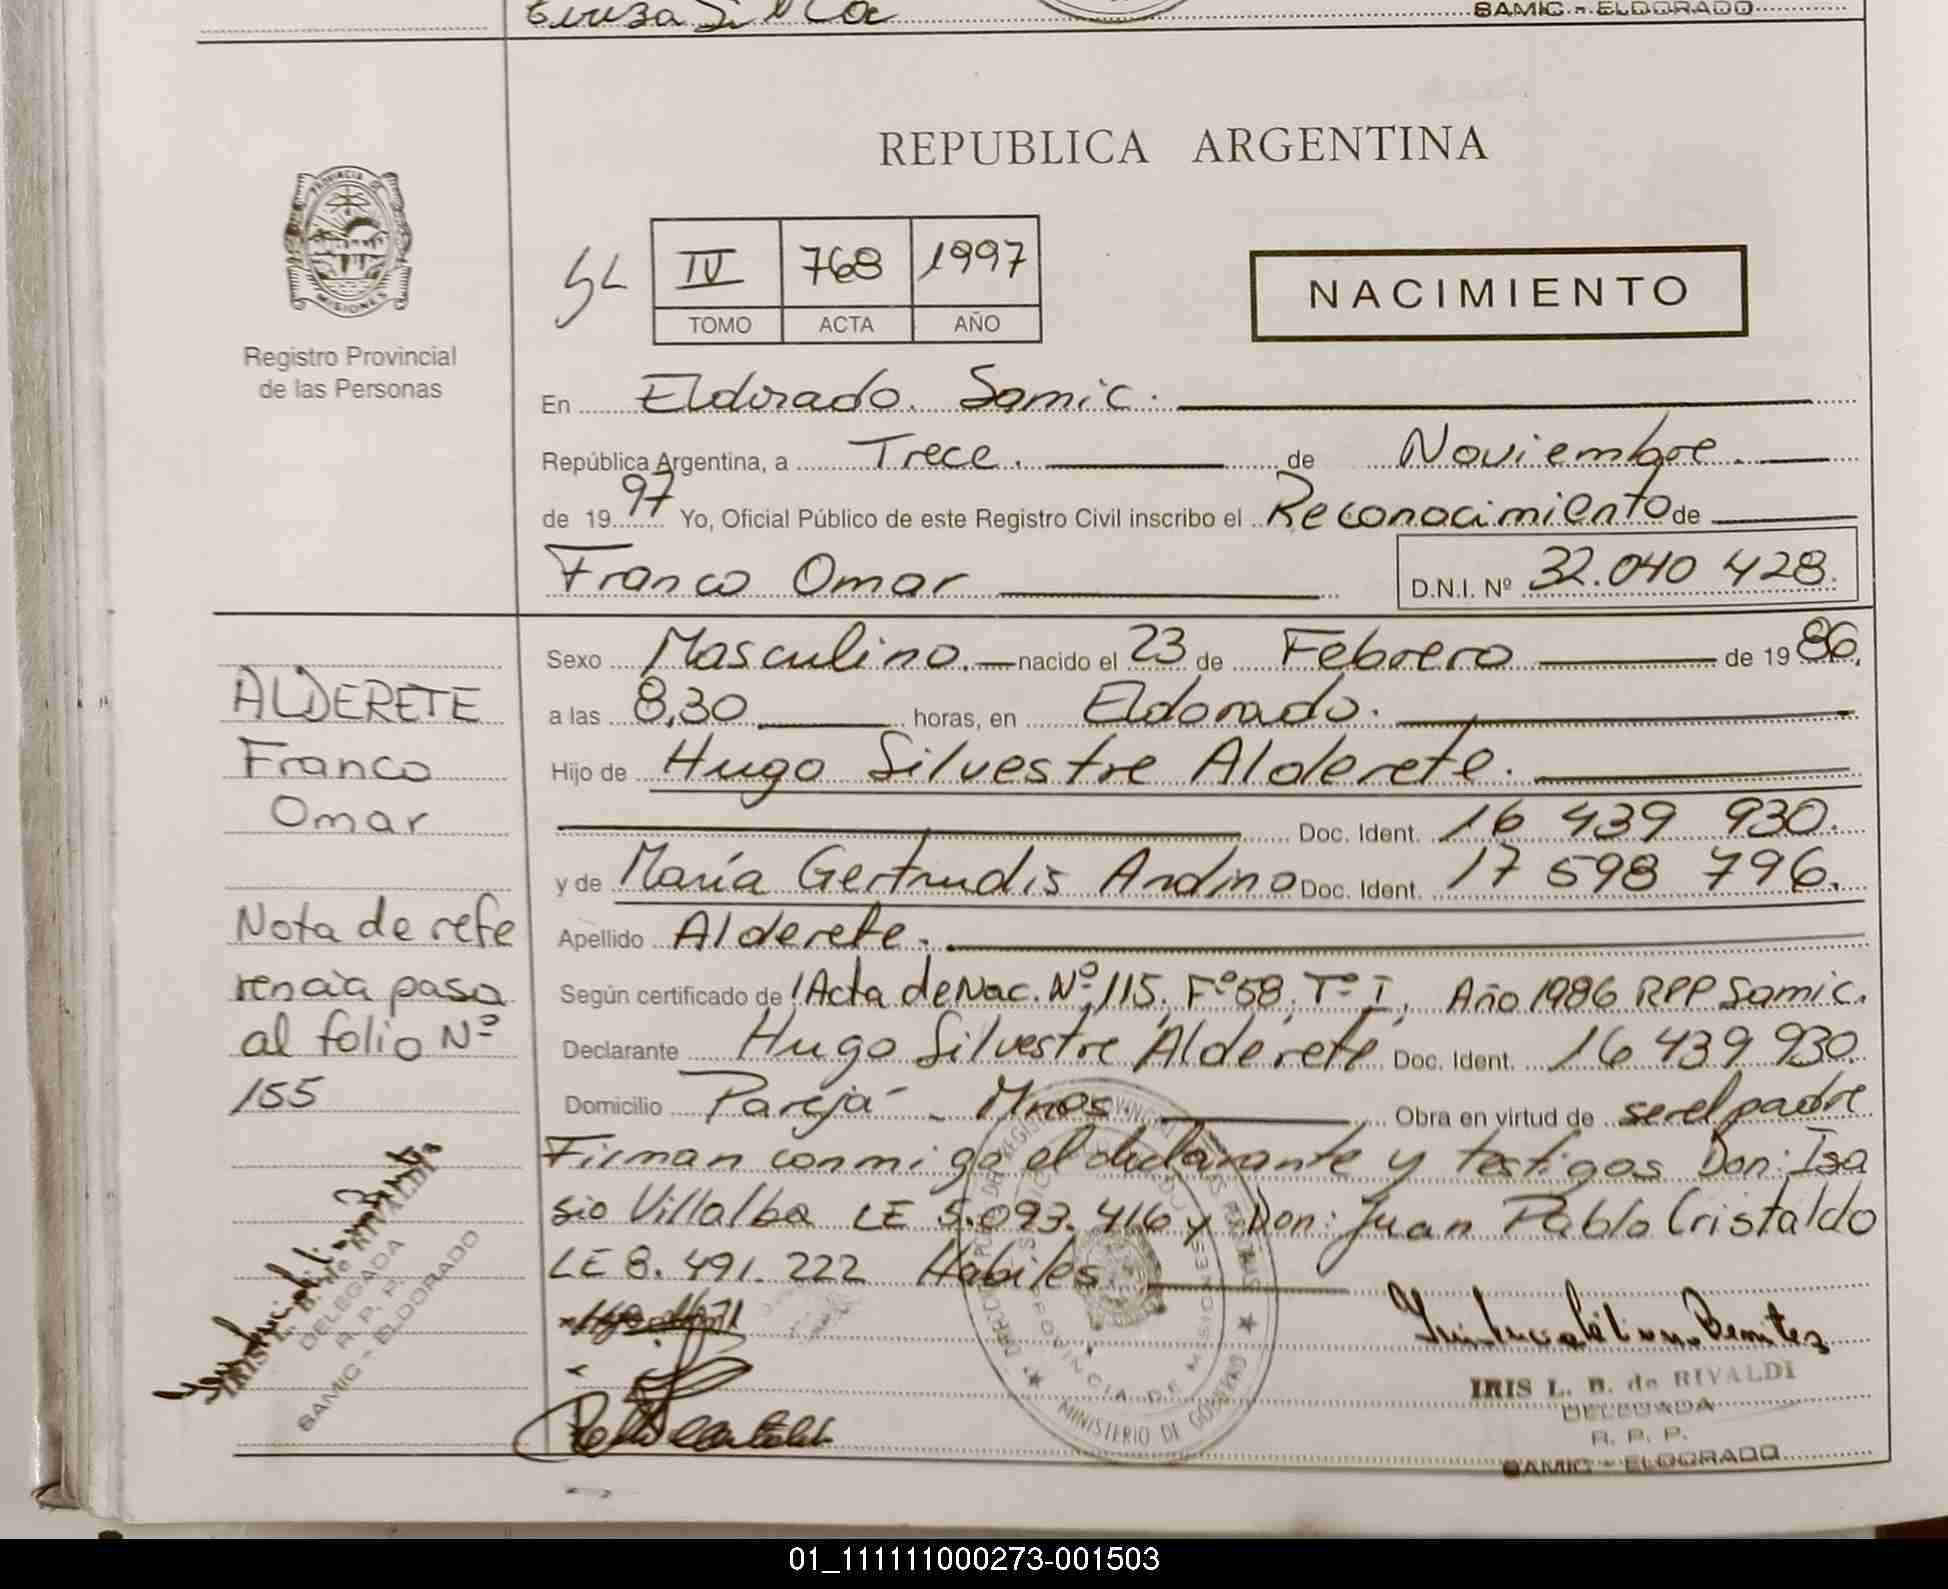 SAMIC - ELDORADO
REPUBLICA ARGENTINA
PROVINCIA DE
MISIONES
Registro Provincial
de las Personas
IV 768 1997
TOMO ACTA AÑO
NACIMIENTO
En Eldorado. Samic.
República Argentina, a Trece. de Noviembre.
de 1997 Yo, Oficial Público de este Registro Civil inscribo el Reconocimiento de
Franco Omar D.N.I. Nº 32.040 428.
Sexo Masculino. nacido el 23 de Febrero de 1986.
a las 8,30 horas, en Eldorado.
Hijo de Hugo Silvestre Alderete.
Doc. Ident. 16 439 930.
y de María Gertrudis Andino Doc. Ident. 17 598 796.
Apellido Alderete.
Según certificado de Acta de Nac. Nº 115, Fº 58, Tº I, Año 1986 RPP Samic.
Declarante Hugo Silvestre Alderete Doc. Ident. 16 439 930.
Domicilio Parejá - Mnes Obra en virtud de ser el padre
Firman conmigo el declarante y testigos Don: Isa
sio Villalba LE 5.093.416 y Don: Juan Pablo Cristaldo
LE 8.491.222 Habiles.
ALDERETE
Franco
Omar
Nota de refe
rencia pasa
al folio Nº
155
DELEGADA
R. P. P.
SAMIC - ELDORADO
PROVINCIA DE MISIONES
MINISTERIO DE GOBIERNO
IRIS L. B. de RIVALDI
DELEGADA
R. P. P.
SAMIC - ELDORADO
01_111111000273-001503